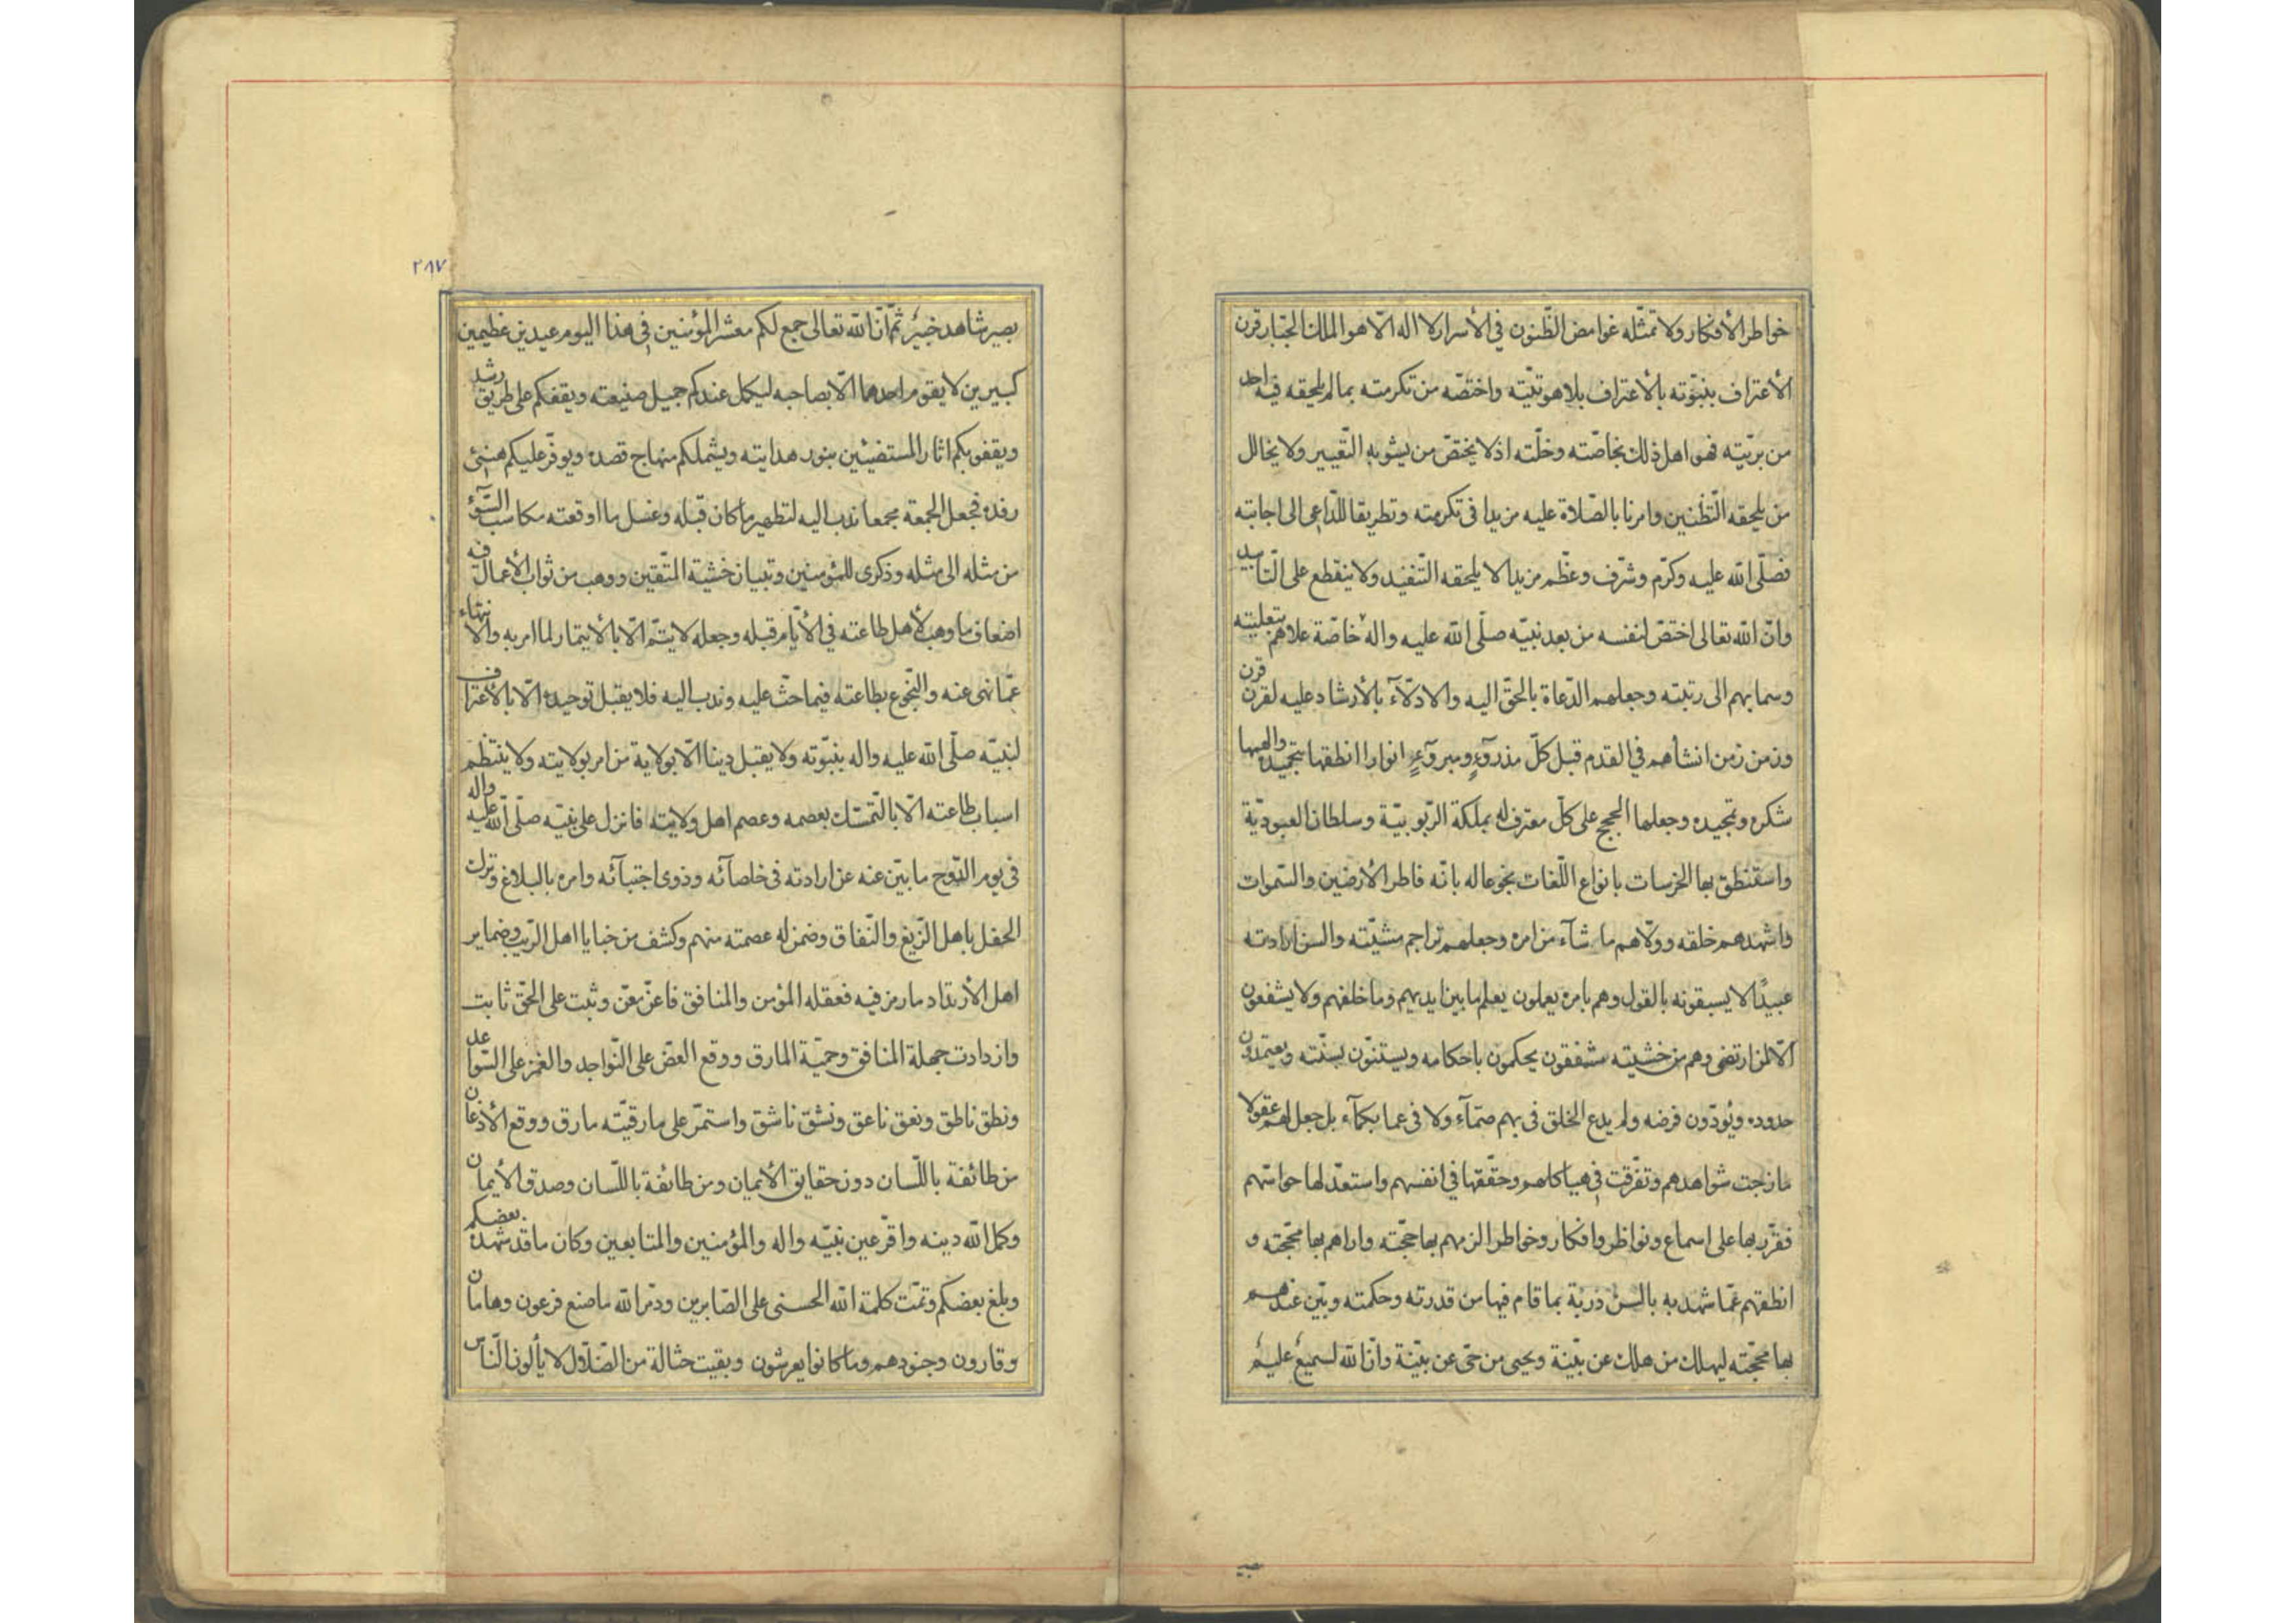 خواطر الأفكار ولا تمثّله غوامض الظّنون في الأسرار لا اله الّا هو الملك الجبّار قرن
الأعتراف بنبوّته بالأعتراف بلاهوتيّته واختصّه من تكرمته بما لم يلحقه فيه احد
من بريّته فهو اهل ذلك بخاصّته وخلّته اذ لا يختصّ من يشوبه التّغيير ولا يخالل
من يلحقه التّظنين وامرنا بالصّلاة عليه مزيدا فى تكرمته وتطريقا للدّاعى الى اجابته
فصلّى الله عليه وكرّم وشرّف وعظّم مزيدا لا يلحقه التنفيد ولا ينقطع على التّأبيد
وانّ الله تعالى اختصّ لنفسه من بعد نبيّه صلّى الله عليه واله خاصّة علاهم بتعليته
وسما بهم الى رتبته وجعلهم الدّعاة بالحقّ اليه والادلّآء بالأرشاد عليه لقرن قرن
وزمن زمن انشأهم في القدم قبل كلّ مذروّءٍ ومبروّءٍ انوارا انطقها بتحميده والهمها
شكره وتمجيده وجعلها الحجج على كلّ معترف له بملكة الرّبوبيّة وسلطان العبوديّة
واستنطق بها الخرسات بانواع اللّغات بخوعا له بانّه فاطر الارضين والسّموات
واشهدهم خلقه وولّاهم ما شآء من امره وجعلهم تراجم مشيّته والسن ارادته
عبيدًا لا يسبقونه بالقول وهم بامره يعملون يعلم ما بين ايديهم وما خلفهم ولا يشفعون
الّا لمن ارتضى وهم من خشيته مشفقون يحكمون باحكامه ويستنّون بسنّته ويعتمدون
حدوده ويؤدّون فرضه ولم يدع الخلق فى بهم صمّآء ولا فى عما بكمآء بل جعل لهم عقولا
مازجت شواهدهم وتفرّقت في هياكلهم وحقّقها في انفسهم واستعدّ لها حواسّهم
فقرّر بها على اسماع ونواظر وافكار وخواطر الزمهم بها حجّته واراهم بها محجّته و
انطقهم عمّا شهد به بالسن ذربة بما قام فيها من قدرته وحكمته وبيّن عندهم
بها محجّته ليهلك من هلك عن بيّنة ويحيى من حىّ عن بيّنة وانّ الله لسميع عليم
٢٨٧
بصير شاهد خبير ثمّ انّ الله تعالى جمع لكم معشر المؤمنين في هذا اليوم عيدين عظيمين
كبيرين لا يقوم احدهما الّا بصاحبه ليكمل عندكم جميل صنيعته ويقفكم على طريق رشد
ويقفو بكم اثار المستضيئين بنور هدايته ويشملكم منهاج قصده ويوفّر عليكم هنىئ
رفده فجعل الجمعة مجمعا ندب اليه لتطهير ما كان قبله وغسل ما اوقعته مكاسب السّوّء
من مثله الى مثله وذكرى للمؤمنين وتبيان خشية المتّقين ووهب من ثواب الأعمال فيه
اضعاف ما وهب لأهل طاعته في الأيّام قبله وجعله لا يتمّ الّا بالأيتمار لما امر به والانتهاء
عمّا نهى عنه والبخوع بطاعته فيما حثّ عليه وندب اليه فلا يقبل توحيده الّا بالأعتراف
لنبيّه صلّى الله عليه واله بنبوّته ولا يقبل دينا الّا بولاية من امر بولايته ولا ينتظم
اسباب طاعته الّا بالتّمسّك بعصمه وعصم اهل ولايته فانزل على نبيّه صلّى الله عليه واله
فى يوم الدّوح ما بيّن عنه عن ارادته فى خلصآئه وذوى اجتبآئه وامره بالبلاغ وترك
الحفل باهل الزّيغ والنّفاق وضمن له عصمته منهم وكشف من خبايا اهل الرّيب وضماير
اهل الأرتداد ما رمز فيه فعقله المؤمن والمنافق فاعزّ معزّ وثبت على الحقّ ثابت
وازدادت جهلة المنافق وحميّة المارق ووقع العضّ على النّواجد والغمز على السّواعد
ونطق ناطق ونعق ناعق ونشق ناشق واستمرّ على مارقيّته مارق ووقع الأذعان
من طائفة باللّسان دون حقايق الأيمان ومن طائفة باللّسان وصدق الأيمان
وكمل الله دينه واقرّ عين نبيّه واله والمؤمنين والمتابعين وكان ما قد شهده بعضكم
وبلغ بعضكم وتمّت كلمة الله الحسنى على الصّابرين ودمّر الله ما صنع فرعون وهامان
وقارون وجنودهم وما كانوا يعرشون وبقيت حثالة من الضّلّال لا يألون النّاس